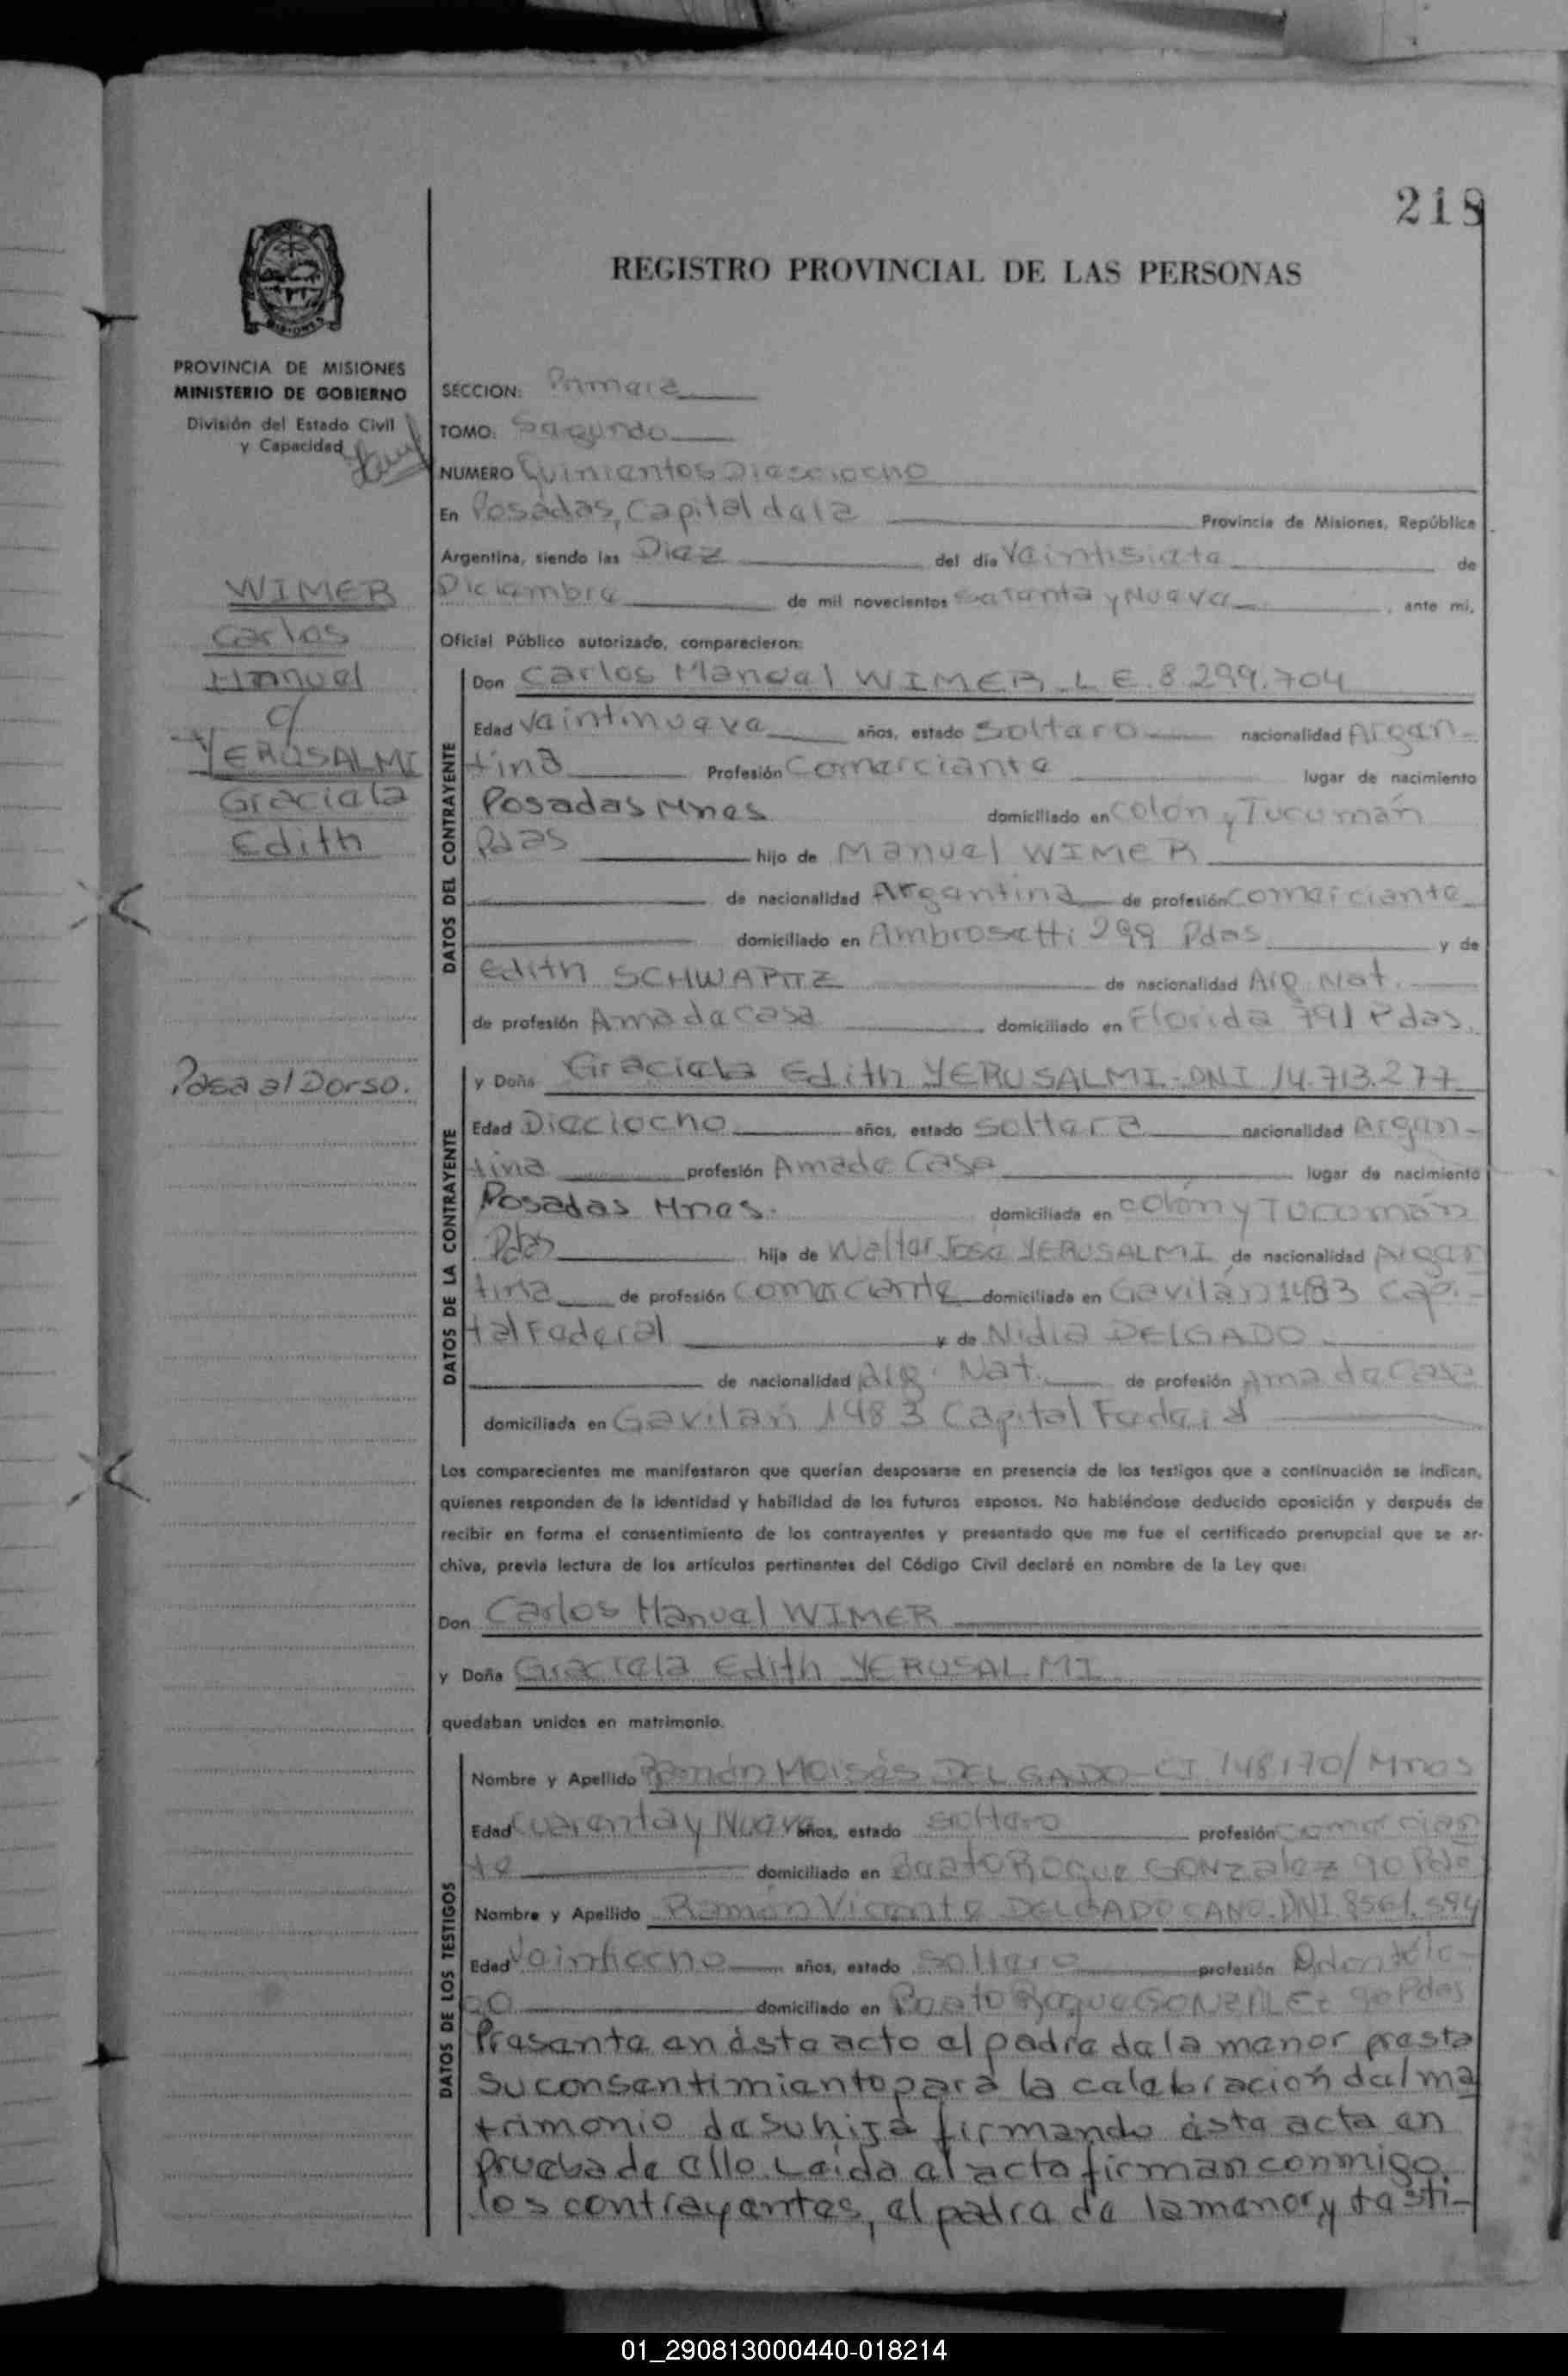 218
REGISTRO PROVINCIAL DE LAS PERSONAS
PROVINCIA DE MISIONES
MINISTERIO DE GOBIERNO
División del Estado Civil
y Capacidad
SECCION: Primera
TOMO: Segundo
NUMERO Quinientos Dieciocho
En Posadas, Capital de la Provincia de Misiones, República
Argentina, siendo las Diez del día Veintisiete de
Diciembre de mil novecientos Setenta y Nueve, ante mi,
Oficial Público autorizado, comparecieron:
WIMER
Carlos
Manuel
c/
YERUSALMI
Graciela
Edith
Pasa al Dorso.
DATOS DEL CONTRAYENTE
Don Carlos Manuel WIMER L E. 8.299.704
Edad Veintinueve años, estado Soltero nacionalidad Argen-
tina Profesión Comerciante lugar de nacimiento
Posadas Mnes domiciliado en Colón y Tucumán
Pdas hijo de Manuel WIMER
de nacionalidad Argentina de profesión Comerciante
domiciliado en Ambrosetti 299 Pdas y de
Edith SCHWARTZ de nacionalidad Arg. Nat.
de profesión Ama de casa domiciliado en Florida 791 Pdas.
DATOS DE LA CONTRAYENTE
y Doña Graciela Edith YERUSALMI-DNI 14.713.277
Edad Dieciocho años, estado Soltera nacionalidad Argen-
tina profesión Ama de Casa lugar de nacimiento
Posadas Mnes. domiciliada en Colón y Tucumán
Pdas hija de Walter José YERUSALMI de nacionalidad Argen
tina de profesión Comerciante domiciliado en Gavilán 1483 Capi-
tal Federal y de Nidia DELGADO
de nacionalidad Arg. Nat. de profesión Ama de Casa
domiciliada en Gavilán 1483 Capital Federal
Los comparecientes me manifestaron que querían desposarse en presencia de los testigos que a continuación se indican,
quienes responden de la identidad y habilidad de los futuros esposos. No habiéndose deducido oposición y después de
recibir en forma el consentimiento de los contrayentes y presentado que me fue el certificado prenupcial que se ar-
chiva, previa lectura de los artículos pertinentes del Código Civil declaré en nombre de la Ley que:
Don Carlos Manuel WIMER
y Doña Graciela Edith YERUSALMI
quedaban unidos en matrimonio.
DATOS DE LOS TESTIGOS
Nombre y Apellido Ramón Moisés DELGADO-CI 148170/Mnes
Edad Cuarenta y Nueve años, estado Soltero profesión Comercian
te domiciliado en Beato Roque GONZalez 90 Pdas
Nombre y Apellido Ramón Vicente DELGADO CANO. DNI 8561.594
Edad Veintiocho años, estado Soltero profesión Odontólo-
go domiciliado en Beato Roque GONZALEz 90 Pdas
Presente en éste acto el padre de la menor presta
su consentimiento para la celebración del ma
trimonio de su hija firmando ésta acta en
prueba de ello. Leída el acta firman conmigo.
los contrayentes, el padre de la menor y testi-
01_290813000440-018214